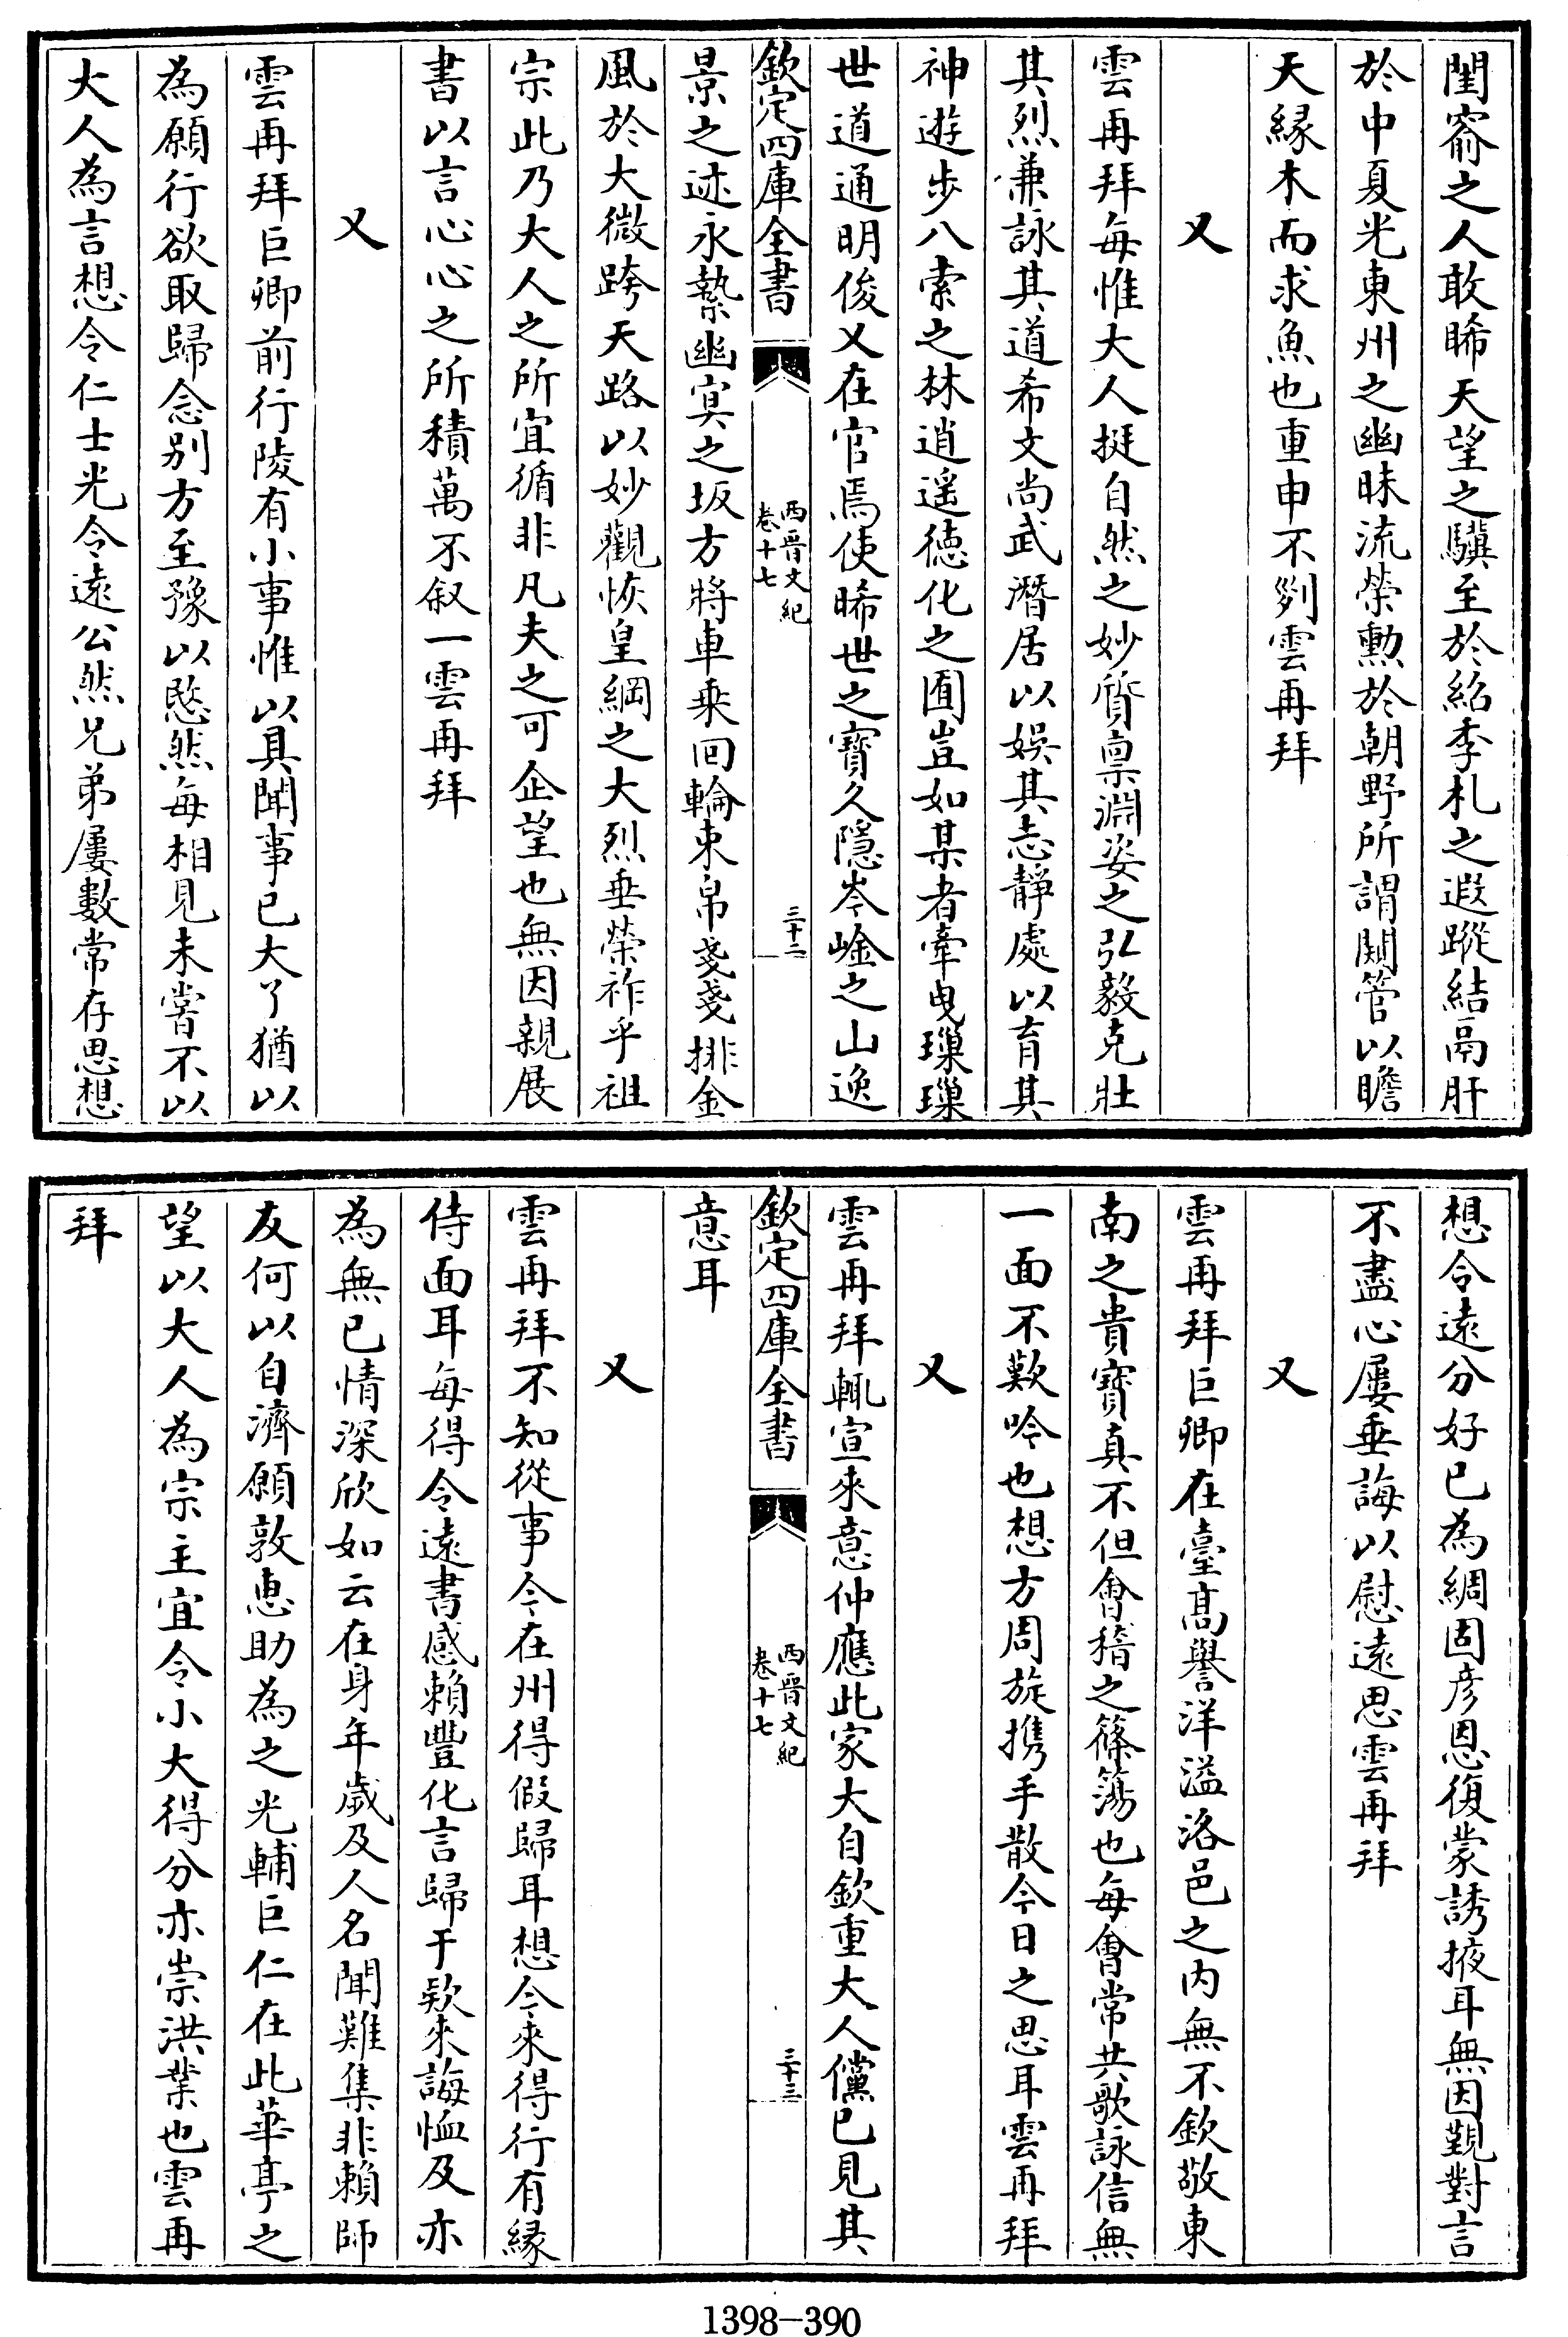 閨窬之人敢晞天望之驥至於紹季札之遐蹤結鬲肝
於中夏光東州之幽昧流榮勲於朝野所謂闚管以瞻
天緣木而求魚也重申不列雲再拜
又
雲再拜每惟大人挺自然之妙質禀淵姿之弘毅克壯
其烈兼詠其道希文尚武潛居以娱其志靜處以育其
神遊步八索之林逍遥徳化之囿豈如某者牽曳璅璅
世道通明俊乂在官焉使晞世之寶久隱岑崟之山逸
欽定四庫全書
西晉文紀
卷十七
三十二
景之迹永縶幽㝠之坂方將車乗囘輪束帛戔戔排金
風於大微跨天路以妙觀恢皇綱之大烈垂榮祚乎祖
宗此乃大人之所宜循非凡夫之可企望也無因親展
書以言心心之所積萬不叙一雲再拜
又
雲再拜巨卿前行陵有小事惟以具聞事已大了猶以
為願行欲取歸念别方至豫以愍然每相見未嘗不以
大人為言想令仁士光令逺公然兄弟屢數常存思想
想令逺分好已為綢固彦恩復蒙誘掖耳無因覲對言
不盡心屢垂誨以慰逺思雲再拜
又
雲再拜巨卿在臺髙譽洋溢洛邑之内無不欽敬東
南之貴寶真不但會稽之篠簜也每會常共歌詠信無
一面不歎吟也想方周旋携手散今日之思耳雲再拜
又
雲再拜輒宣來意仲應此家大自欽重大人儻已見其
欽定四庫全書
西晉文紀
卷十七
三十三
意耳
又
雲再拜不知從事今在州得假歸耳想今來得行有縁
侍面耳每得令逺書感賴豐化言歸于欵來誨恤及亦
為無已情深欣如云在身年歲及人名聞難集非賴師
友何以自濟願敦惠助為之光輔巨仁在此華亭之
望以大人為宗主宜令小大得分亦崇洪業也雲再
拜
1398-390